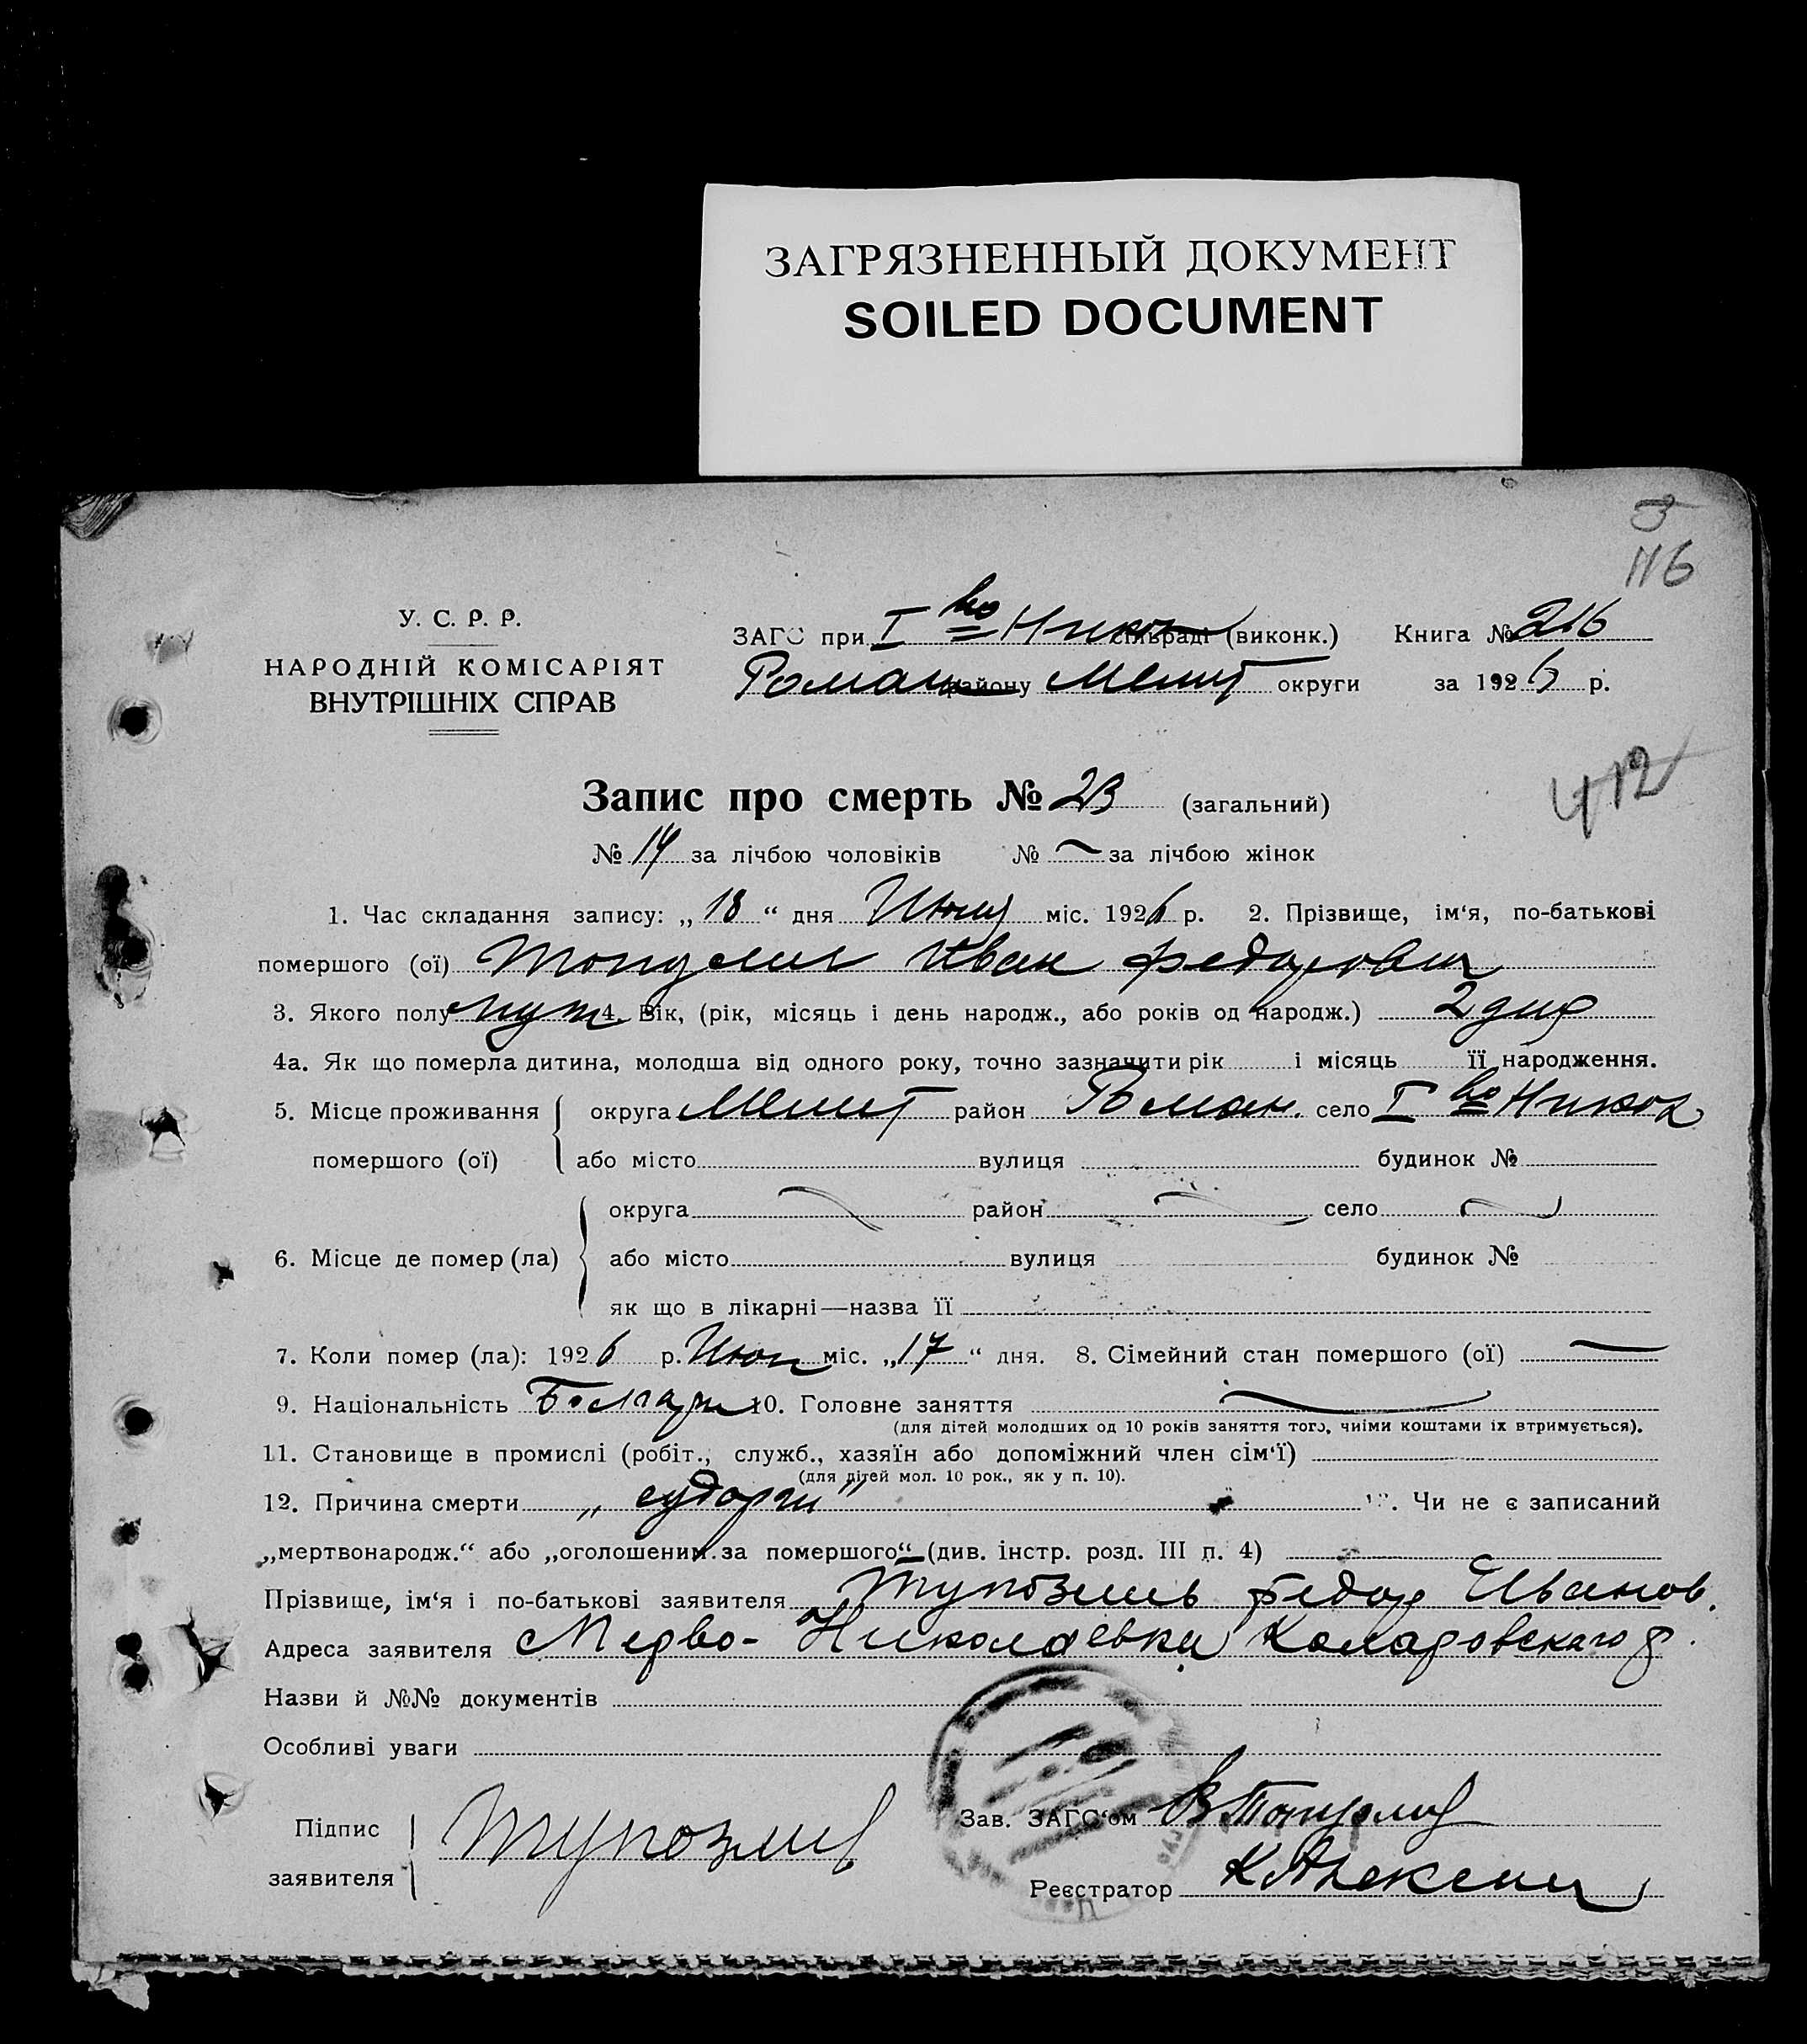 ЗАГРЯЗНЕННЫЙ ДОКУМЕНТ
SOILED DOCUMENT
5
116
У. С. Р. Р.
НАРОДНІЙ КОМІСАРІЯТ
ВНУТРІШНІХ СПРАВ
ЗАГС при I во Никол сільраді (виконк.) Книга № 216
Роман району Мелит округи за 1926 р.
412
Запис про смерть № 23 (загальний)
№ 14 за лічбою чоловіків № — за лічбою жінок
1. Час складання запису: „ 18 “ дня міс. 1926 р. 2. Прізвище, ім‘я, по-батькові
помершого (ої) Иван Федорович
3. Якого полу муж 4. Вік, (рік, місяць і день народж., або років од народж.) 2 дня
4а. Як що померла дитина, молодша від одного року, точно зазначити рік і місяць її народження.
5. Місце проживання округа Мелит район Роман. село I во Никол
помершого (ої) або місто вулиця будинок №
округа район село
6. Місце де помер (ла) або місто вулиця будинок №
як що в лікарні—назва її
7. Коли помер (ла): 1926 р. міс. „17“ дня. 8. Сімейний стан помершого (ої) —
9. Національність Болгарин 10. Головне заняття —
(для дітей молодших од 10 років заняття того, чиїми коштами їх втримується).
11. Становище в промислі (робіт., служб., хазяїн або допоміжний член сім‘ї)
(для дітей мол. 10 рок., як у п. 10).
12. Причина смерти „судорги“ 13. Чи не є записаний
„мертвонародж.“ або „оголошеним за помершого“ (див. інстр. розд. III п. 4)
Прізвище, ім‘я і по-батькові заявителя Федор Иванов.
Адреса заявителя Перво-Николаевка
Назви й №№ документів
Особливі уваги
Підпис
заявителя
Зав. ЗАГС‘ом
Реєстратор